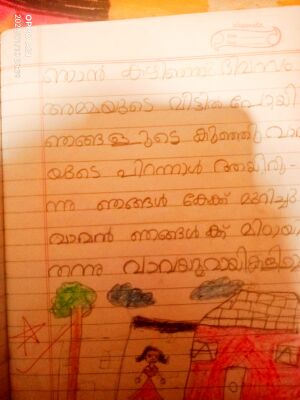 ഞാൻ കഴിഞ്ഞ ദിവസം
അമ്മയുടെ വീട്ടിൽ പോയി
ഞങ്ങളുടെ കുഞ്ഞു വാവ
യുടെ പിറന്നാൾ ആയിരു-
ന്നു ഞങ്ങൾ കേക്ക് മുറിച്ചു
വാമൻ ഞങ്ങൾക്ക് മിഠായി
തന്നു വാവയുമായി കളിച്ചു